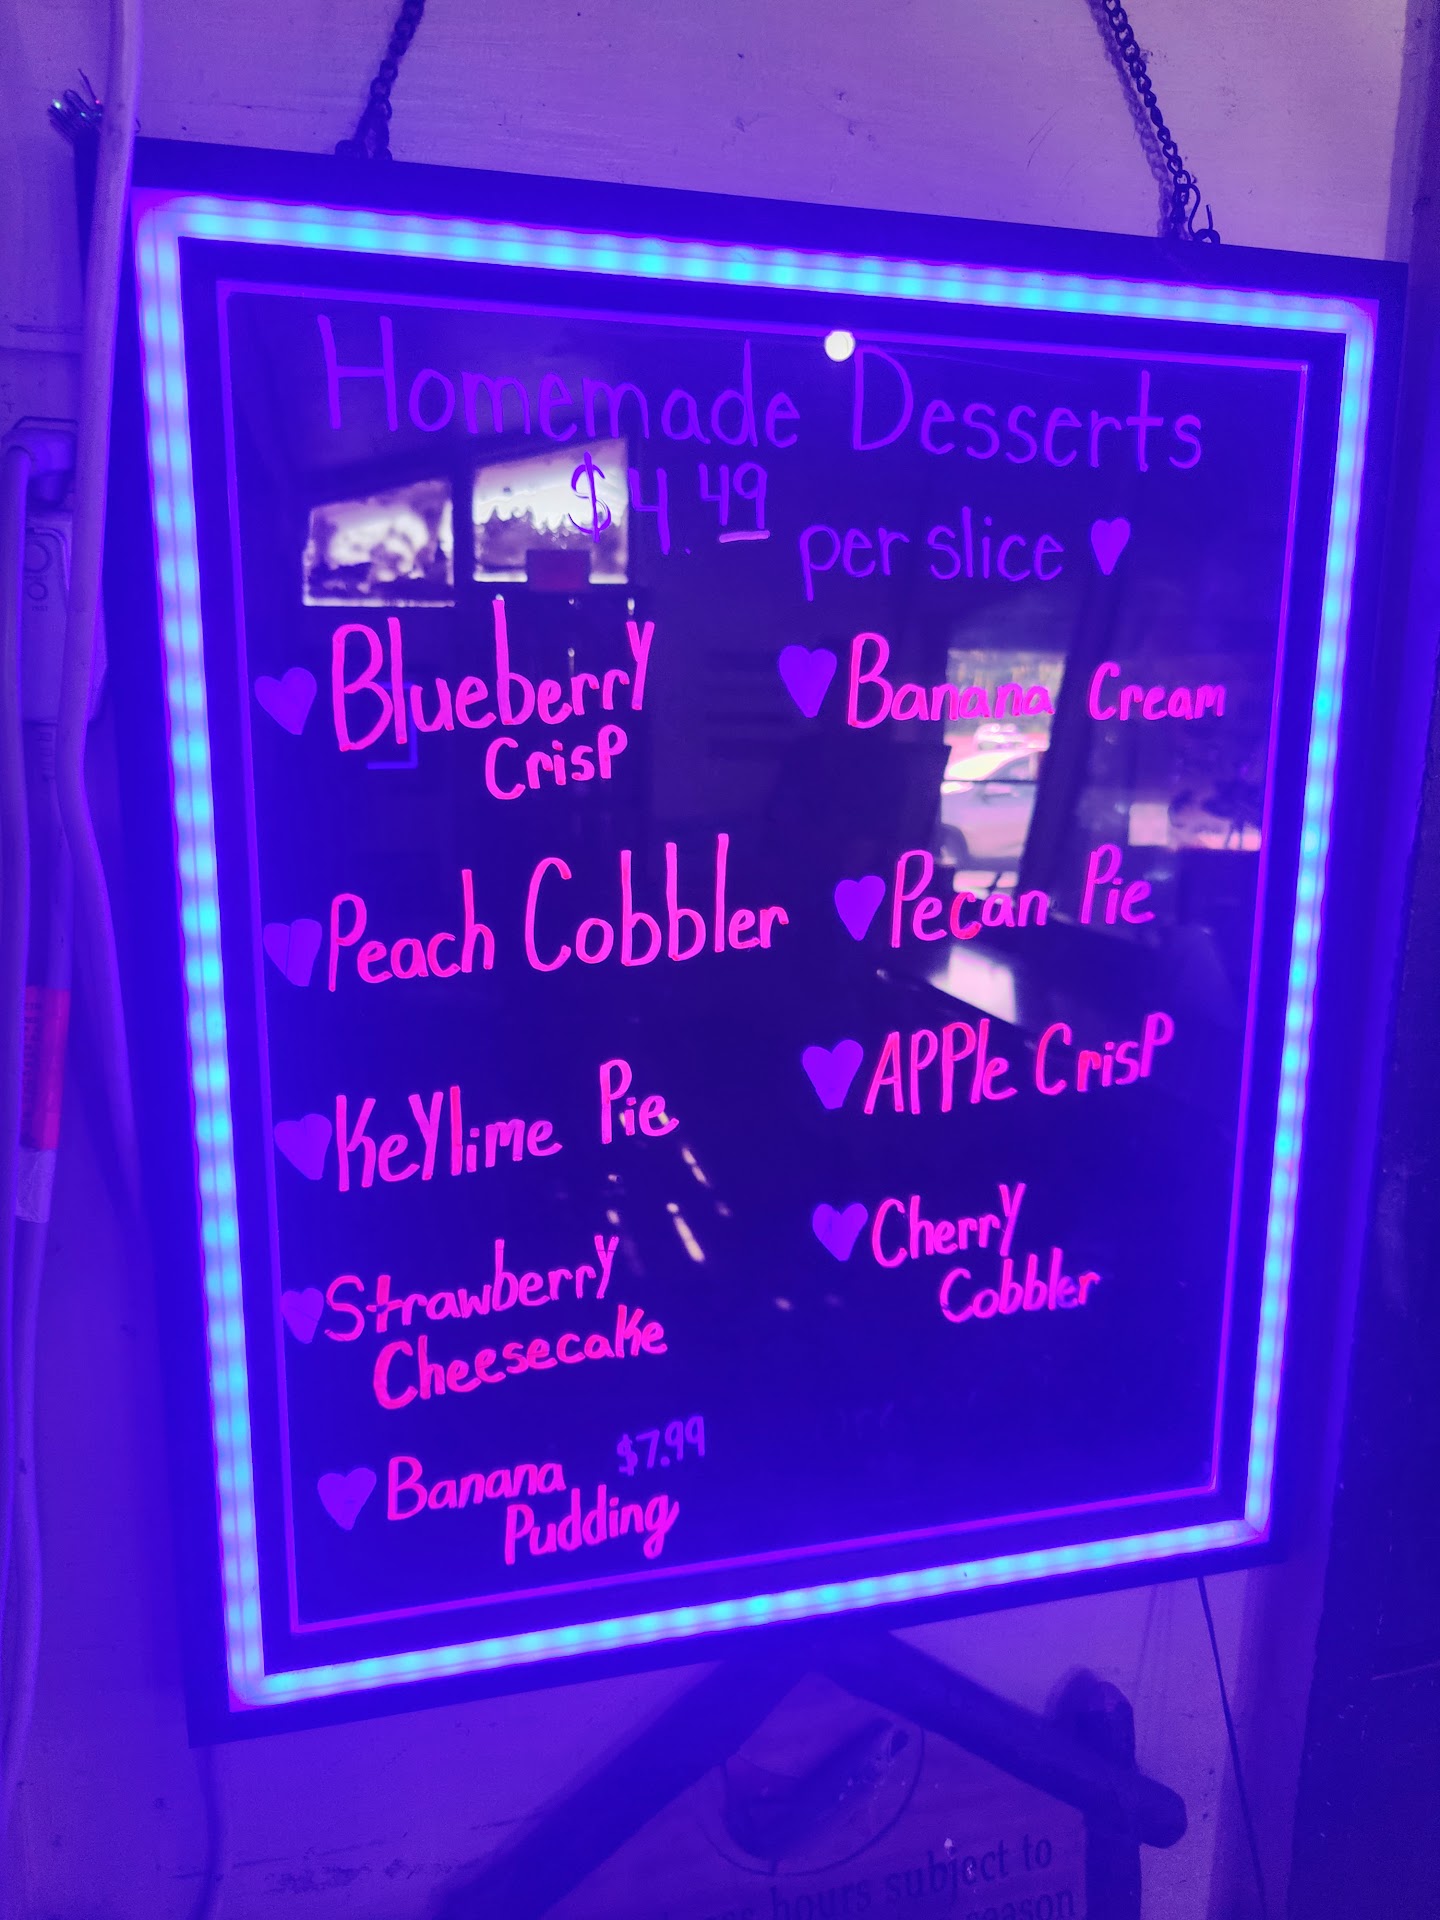 Homemade Desserts
$4.49 per slice
Blueberry
Crisp
Peach Cobbler
Keylime Pie
Strawberry
Cheesecake
Banana $7.99
Pudding
Banana Cream
Pecan Pie
Apple Crisp
Cherry
Cobbler
hours subject to
season